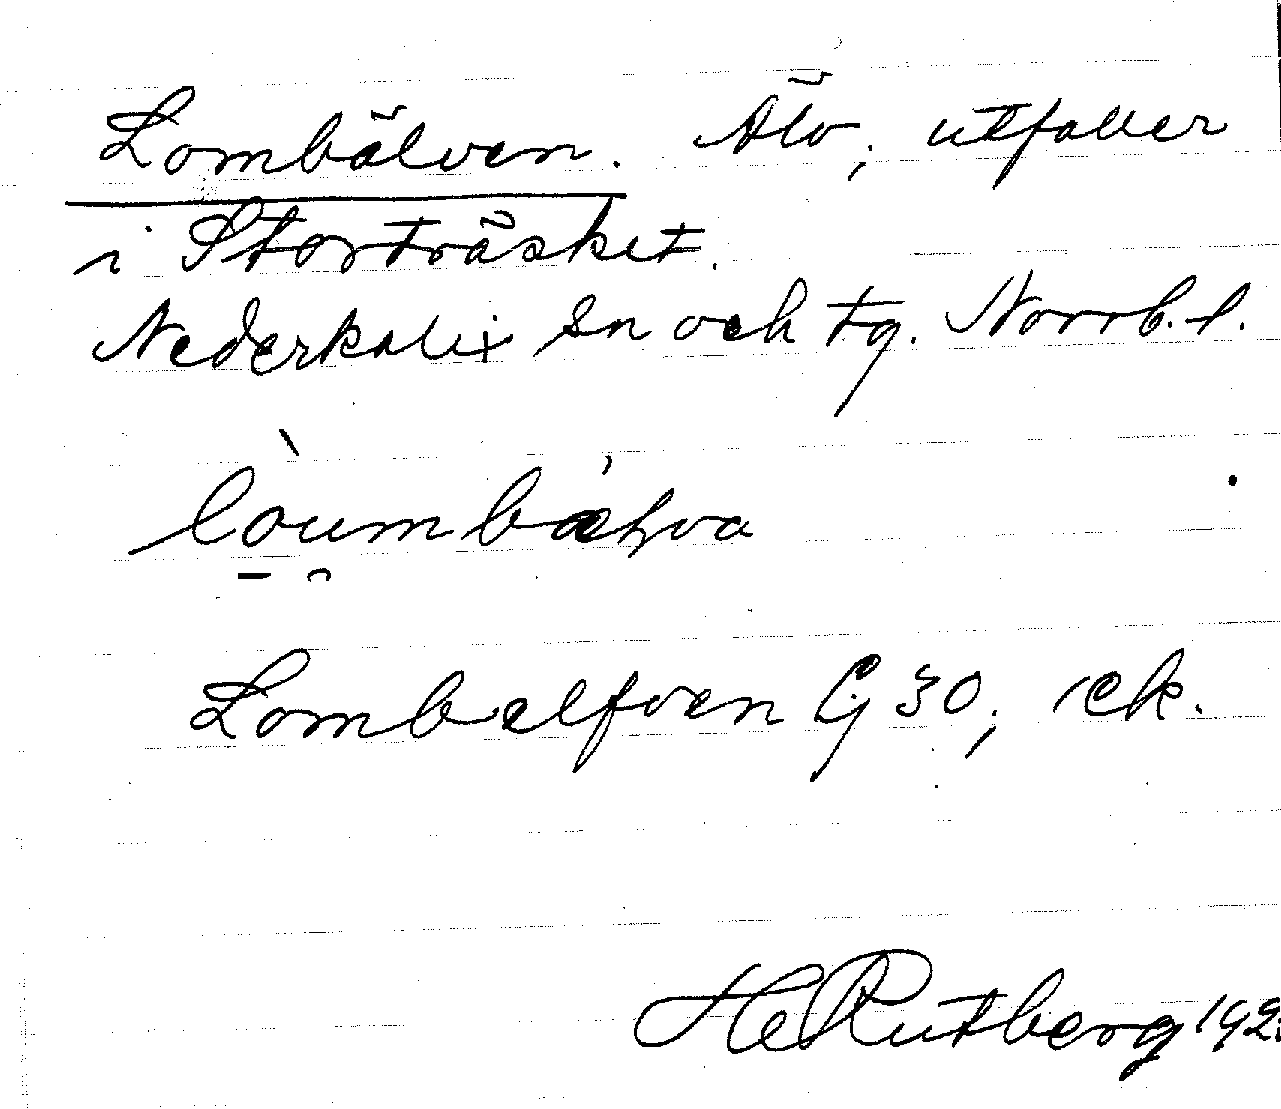 Lombälven. Älv, utfaller
i Storträsket.
Nederkalix sn och tg. Norrb. l.
Lombelfven G 30, iek.
H Rutberg 192